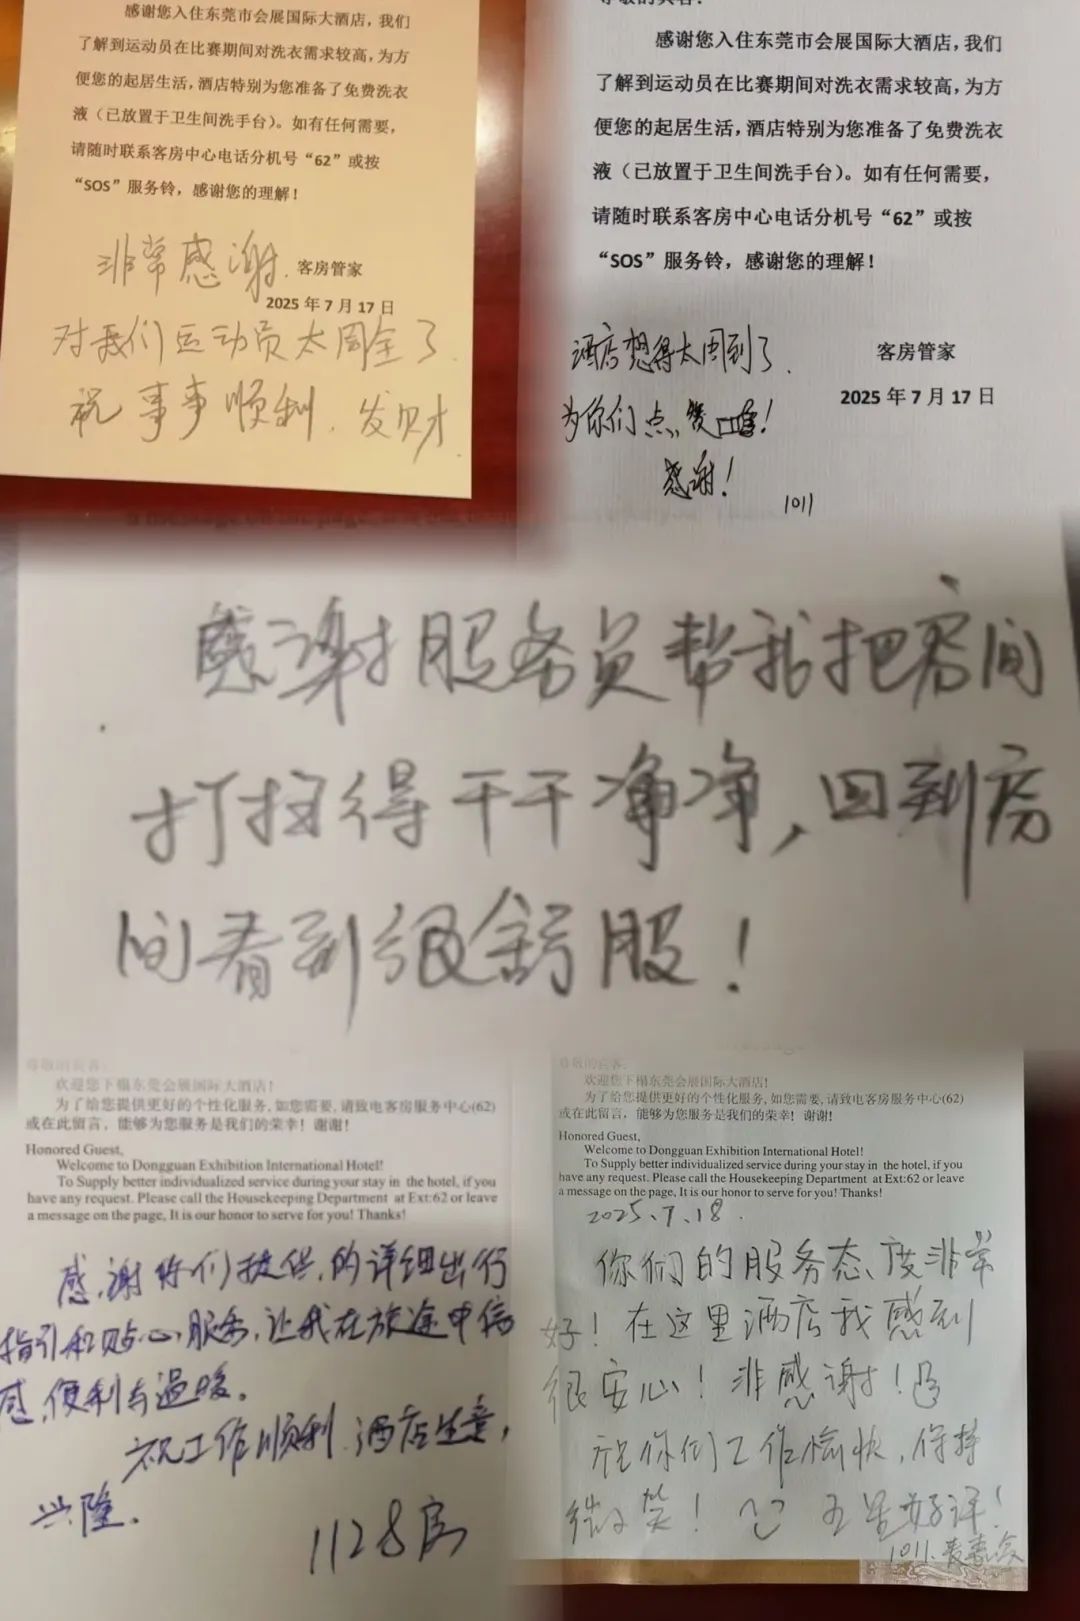 感谢您入住东莞市会展国际大酒店，我们
了解到运动员在比赛期间对洗衣需求较高，为方
便您的起居生活，酒店特别为您准备了免费洗衣
液（已放置于卫生间洗手台）。如有任何需要，
请随时联系客房中心电话分机号“62”或按
“SOS”服务铃，感谢您的理解！
客房管家
2025年7月17日
非常感谢.
对我们运动员太周全了.
祝事事顺利.发财.
尊敬的宾客：
感谢您入住东莞市会展国际大酒店，我们
了解到运动员在比赛期间对洗衣需求较高，为方
便您的起居生活，酒店特别为您准备了免费洗衣
液（已放置于卫生间洗手台）。如有任何需要，
请随时联系客房中心电话分机号“62”或按
“SOS”服务铃，感谢您的理解！
客房管家
2025年7月17日
酒店想得太周到了.
为你们点赞！
感谢！
1011
感谢服务员帮我把房间
打扫得干干净净，回到房
间看到很舒服！
尊敬的宾客：
欢迎您下榻东莞会展国际大酒店！
为了给您提供更好的个性化服务，如您需要，请致电客房服务中心(62)
或在此留言，能够为您服务是我们的荣幸！谢谢！
Honored Guest,
Welcome to Dongguan Exhibition International Hotel!
To Supply better individualized service during your stay in the hotel, if you
have any request. Please call the Housekeeping Department at Ext:62 or leave
a message on the page, It is our honor to serve for you! Thanks!
感谢你们提供的详细出行
指引和贴心服务，让我在旅途中倍
感便利与温暖。
祝工作顺利.酒店生意，
兴隆.
1128房
尊敬的宾客：
欢迎您下榻东莞会展国际大酒店！
为了给您提供更好的个性化服务，如您需要，请致电客房服务中心(62)
或在此留言，能够为您服务是我们的荣幸！谢谢！
Honored Guest,
Welcome to Dongguan Exhibition International Hotel!
To Supply better individualized service during your stay in the hotel, if you
have any request. Please call the Housekeeping Department at Ext:62 or leave
a message on the page, It is our honor to serve for you! Thanks!
2025.7.18.
你们的服务态度非常
好！在这里酒店我感到
很安心！非感谢！
祝你们工作愉快，保持
微笑！五星好评！
1011.